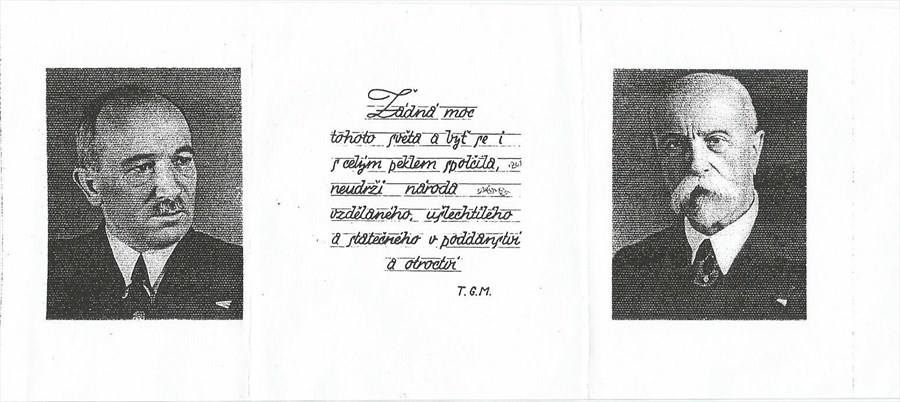 Žádná moc
tohoto světa a byť se i
s celým peklem spolčila,
neudrží národa
vzdělaného, ušlechtilého
a statečného v poddanství
a otroctví
T. G. M.